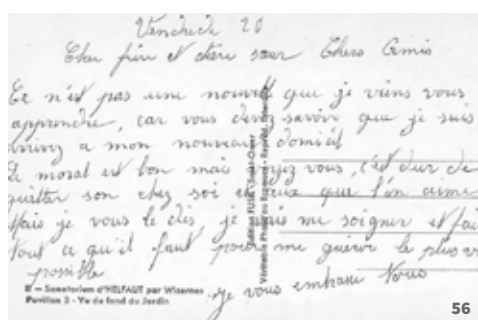 Vendredi 20
Cher frère et chère sœur Chers Amis
Ce n'est pas une nouvelle que je viens vous
apprendre, car vous devez savoir que je suis
arrivez a mon nouveau domicil
Le moral est bon mais voyez vous, c'est dur de
quitter son chez soi et ceux que l'on aime
Mais je vous le dis, je vais me soigner et fai
tout ce qu'il faut pour me guerir le plus v
possible
je vous embrasse Tous
8 — Sanatorium d'HELFAUT par Wizernes
Pavillon 3 - Vu du fond du Jardin
56